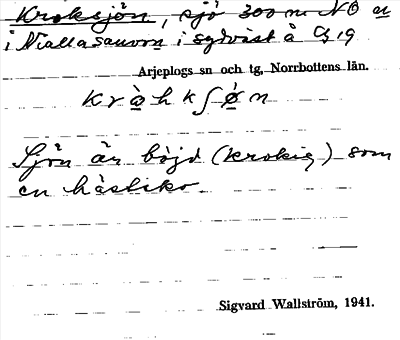 Kroksjön, sjö 300 m NO
i Niallasauvon i sydväst å G 19
Arjeplogs sn och tg, Norrbottens län.
krὰhkʃǿn
Sjön är böjd (krokig) som
en hästsko
Sigvard Wallström, 1941.